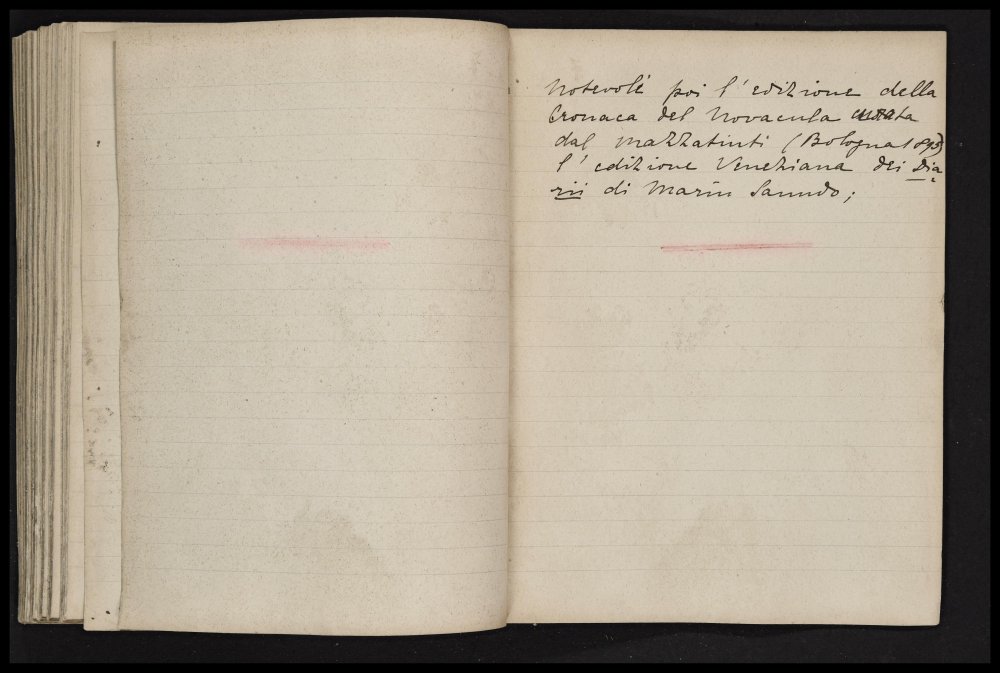 Notevoli poi l'edizione della
Cronaca del Novacula curata
dal Mazzatinti (Bologna 1895)
l'edizione Veneziana dei Dia
rii di Marin Sanudo;